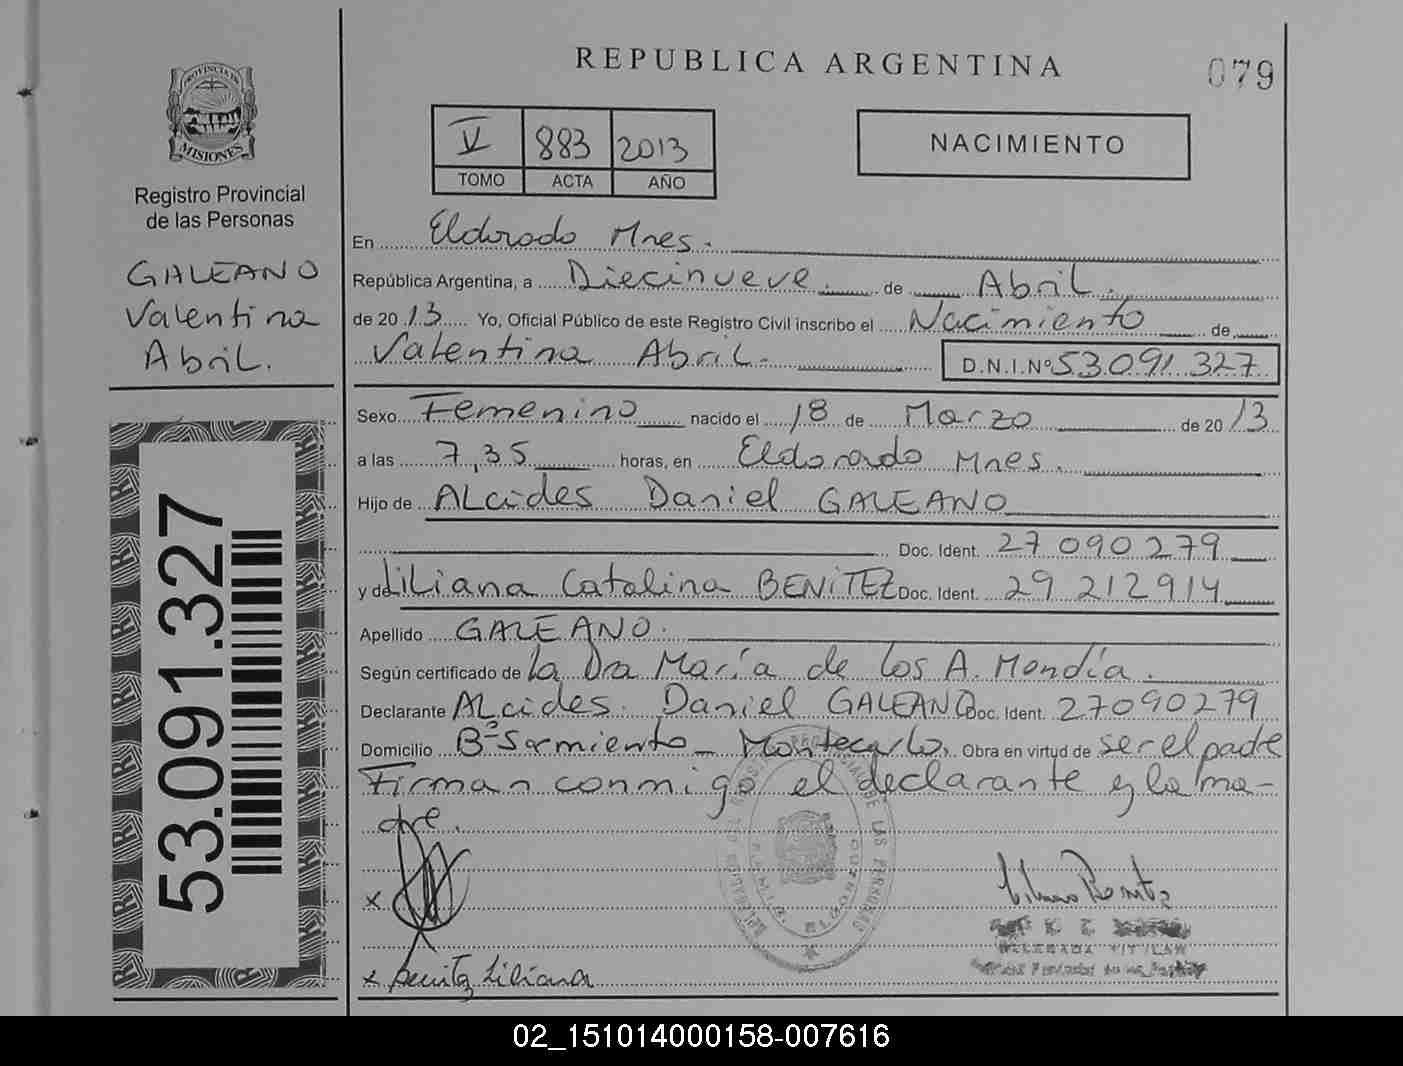 REPUBLICA ARGENTINA
079
PROVINCIA DE
MISIONES
Registro Provincial
de las Personas
GALEANO
Valentina
Abril.
V 883 2013
TOMO ACTA AÑO
NACIMIENTO
En Eldorado Mnes.
República Argentina, a Diecinueve. de Abril.
de 2013 Yo, Oficial Público de este Registro Civil inscribo el Nacimiento de
Valentina Abril. D.N.I.Nº 53.091.327
Sexo Femenino nacido el 18 de Marzo de 2013
a las 7,35 horas, en Eldorado Mnes.
Hijo de ALcides Daniel GALEANO
Doc. Ident. 27 090 279
y de LiLiana Catalina BENITEZ Doc. Ident. 29 212 914
Apellido GALEANO.
Según certificado de la Dra María de los A. Mendía.
Declarante ALcides Daniel GALEANO Doc. Ident. 27090279
Domicilio Bº Sarmiento - Montecarlo, Obra en virtud de ser el padre
Firman conmigo el declarante y la ma-
dre.
x
x Benitez Liliana
53.091.327
02_151014000158-007616